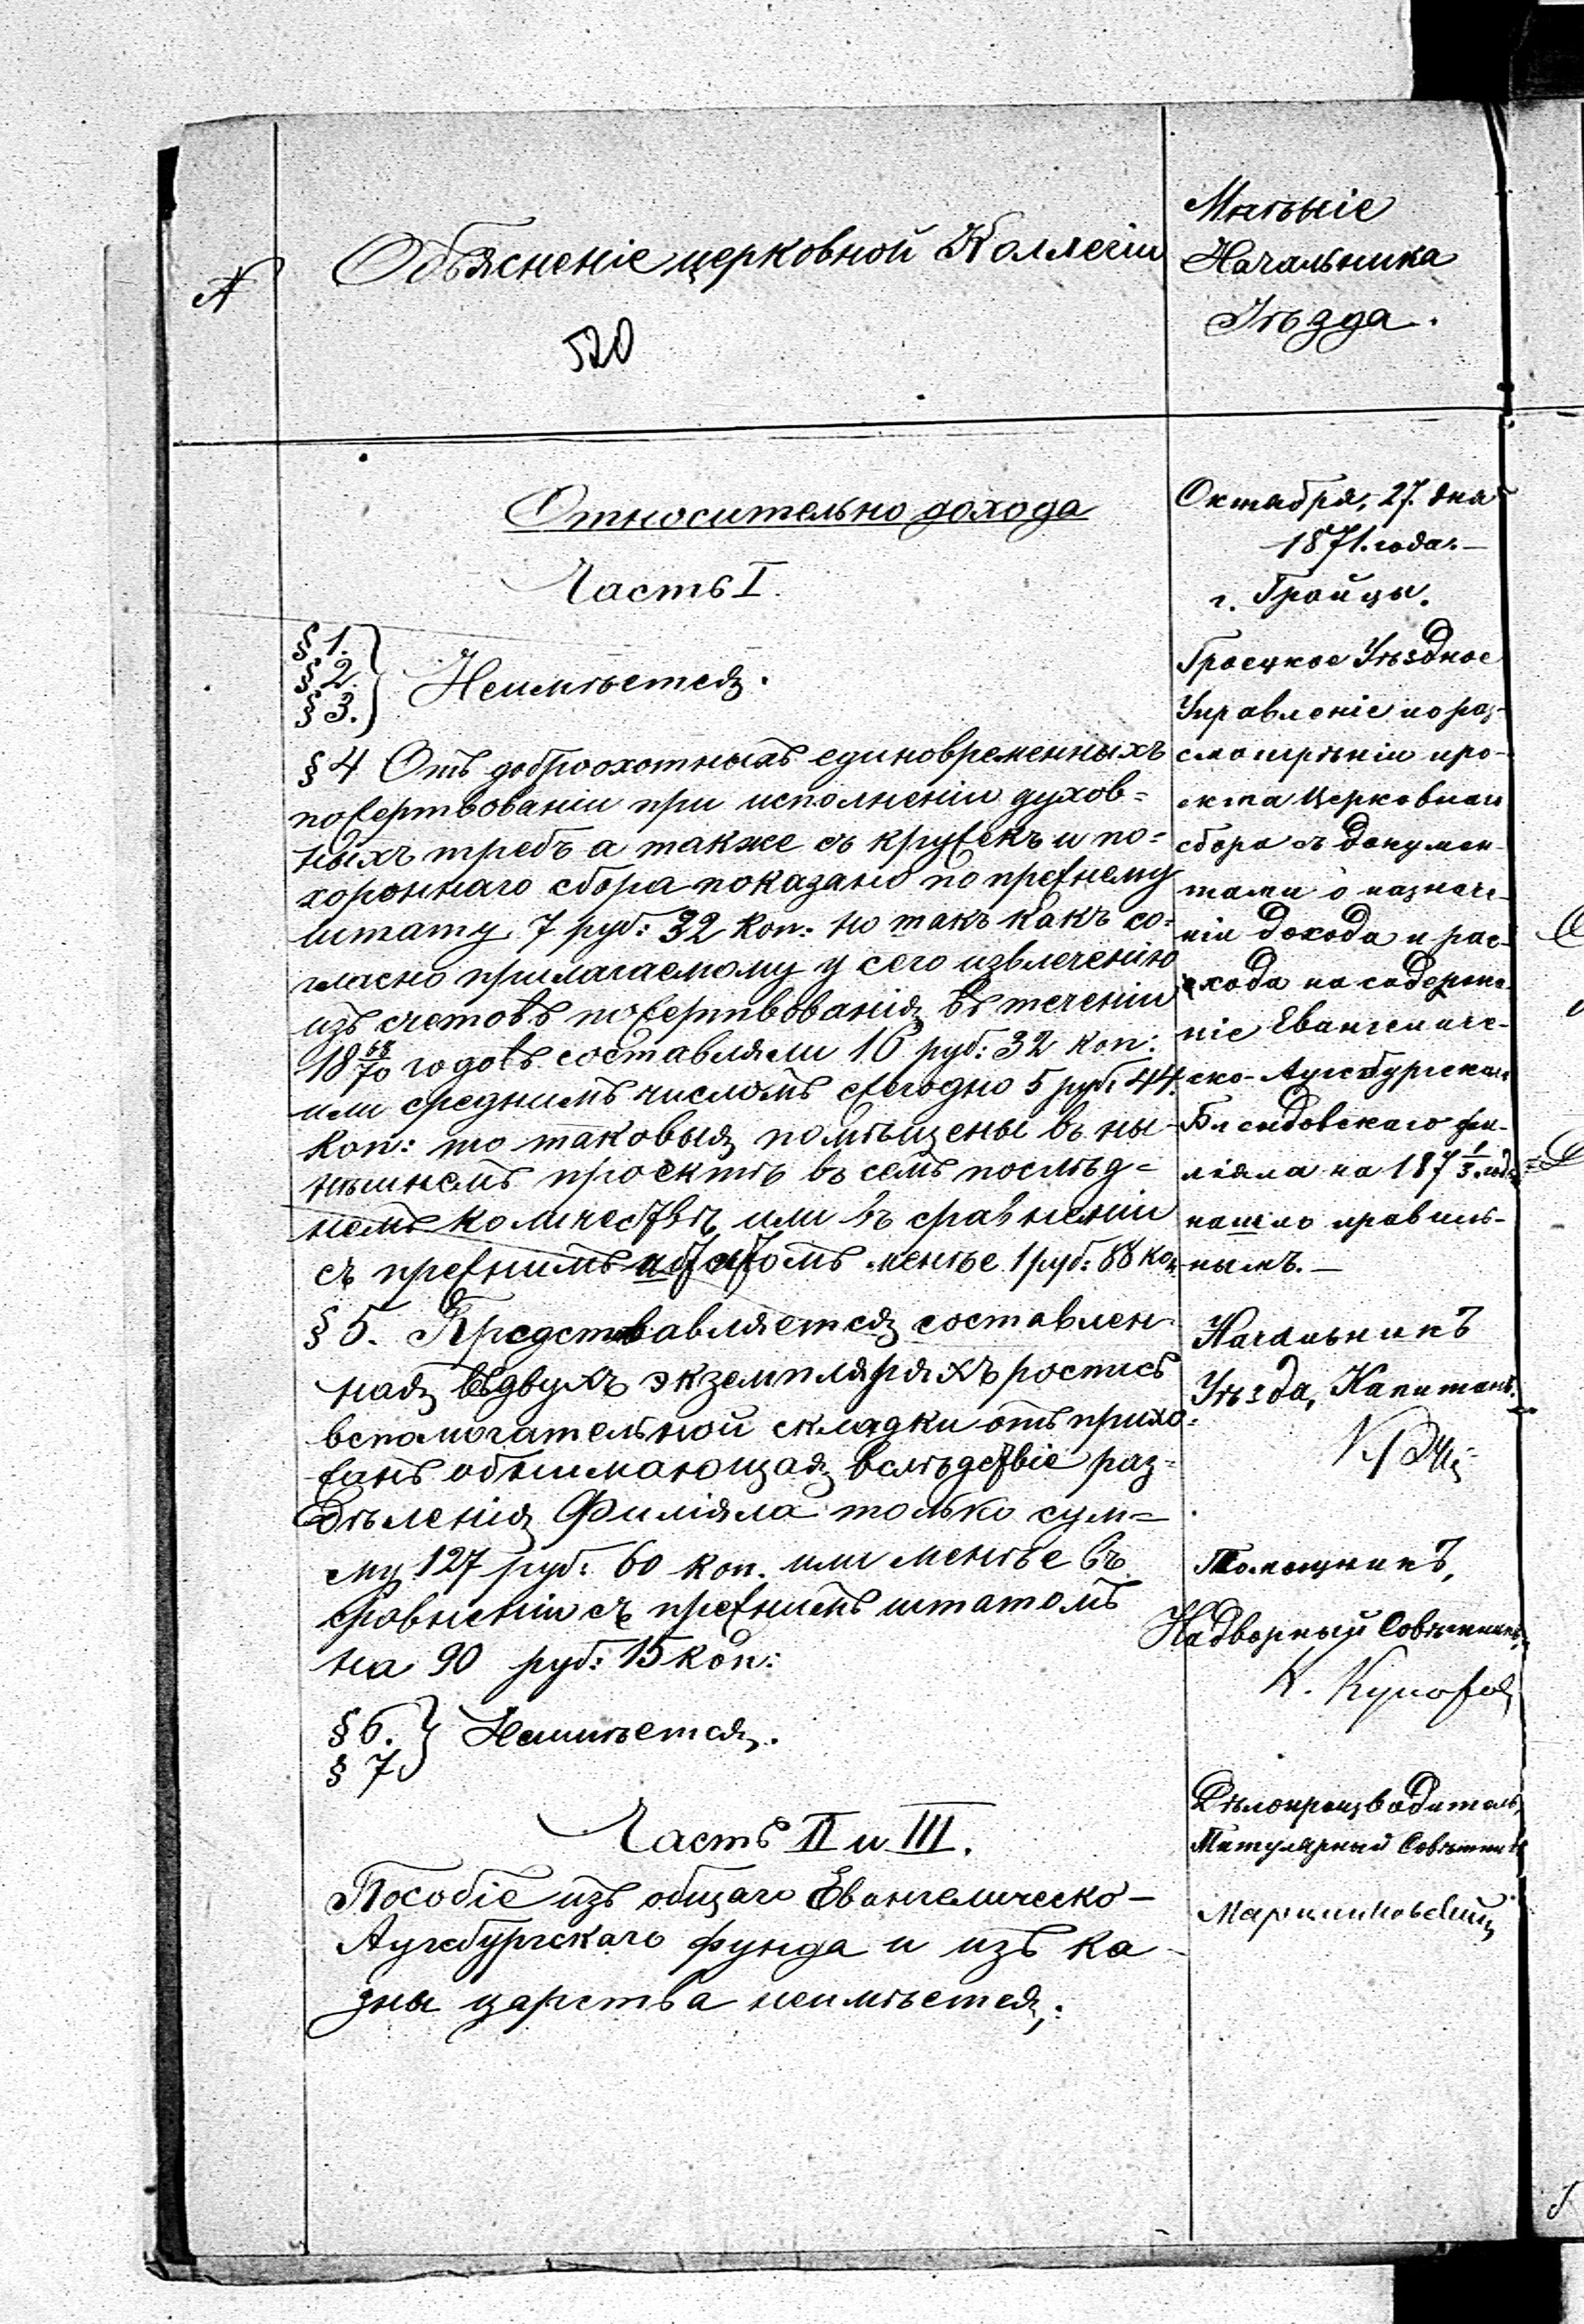 №
Объясненіе церковной Коллегіи
520
Мнѣніе
Начальника
Уѣзда.
Относительно дохода
Часть I.
§ 1.
§ 2.
§ 3.
Неимѣется.
§ 4 Отъ доброохотныхъ единовременныхъ
пожертвованіи при исполненіи духов=
ныхъ требъ а также съ кружекъ и по=
хороннаго сбора показано по прежнему
штату 7 руб: 32 коп: но такъ какъ со=
гласно прилагаемому у сего извлеченію
изъ счетовъ пожертвованія въ теченіи
18 68/70 годовъ составляли 16 руб: 32 коп:
или среднимъ числомъ ежегодно 5 руб: 44.
коп: то таковыя помѣщены въ ны-
нѣшнемъ проектѣ въ семъ послѣд=
немъ количествѣ или въ сравненіи
съ прежнимъ штатомъ менѣе 1 руб: 88 коп.
§ 5. Представляется составлен-
ная въ двухъ экземплярахъ роспись
вспомогательной складки отъ прихо=
жанъ обнимающая вслѣдствіе раз=
дѣленія Филіяла только сум=
му 127 руб: 60 коп. или менѣе въ
сравненіи съ прежнимъ штатомъ
на 90 руб: 15 коп:
§ 6.
§ 7
Неимѣется.
Часть II и III.
Пособіе изъ общаго Евангелическо-
Аугсбургскаго фунда и изъ ка-
зны царства неимѣется.
Октября, 27. дня
1871. года.—
г. Гройцы.
Гроецкое Уѣздное
Управленіе по раз-
смотрѣніи про-
екта Церковнаго
сбора съ докумен-
тами о назначе-
ніи дохода и рас-
хода на содержа-
ніе Евангеличе-
ско-Аугсбургскаго
Блендовскаго фи-
ліяла на 187 1/3 годъ
нашло правиль-
нымъ.—
Начальникъ
Уѣзда, Капитанъ.
Помощникъ,
Надворный Совѣтникъ,
К.
Дѣлопроизводитель,
Титулярный Совѣтникъ